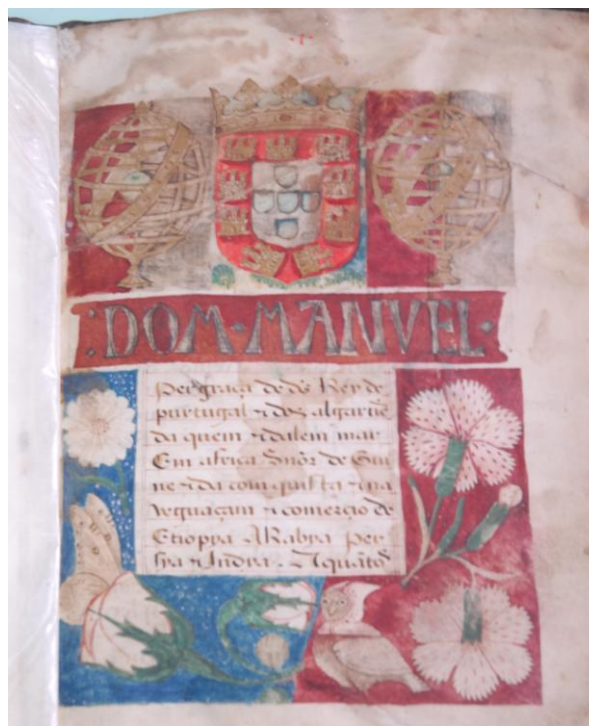 DOM·MANVEL·
per graça de ds Rey de
purtugal & dos algarues
da quem & dalem mar
Em africa Snõr de Gui
ne & da comquista & na
veguaçam & comerçio de
Etiopya ARabya per
sya & Jndya. A quãtos